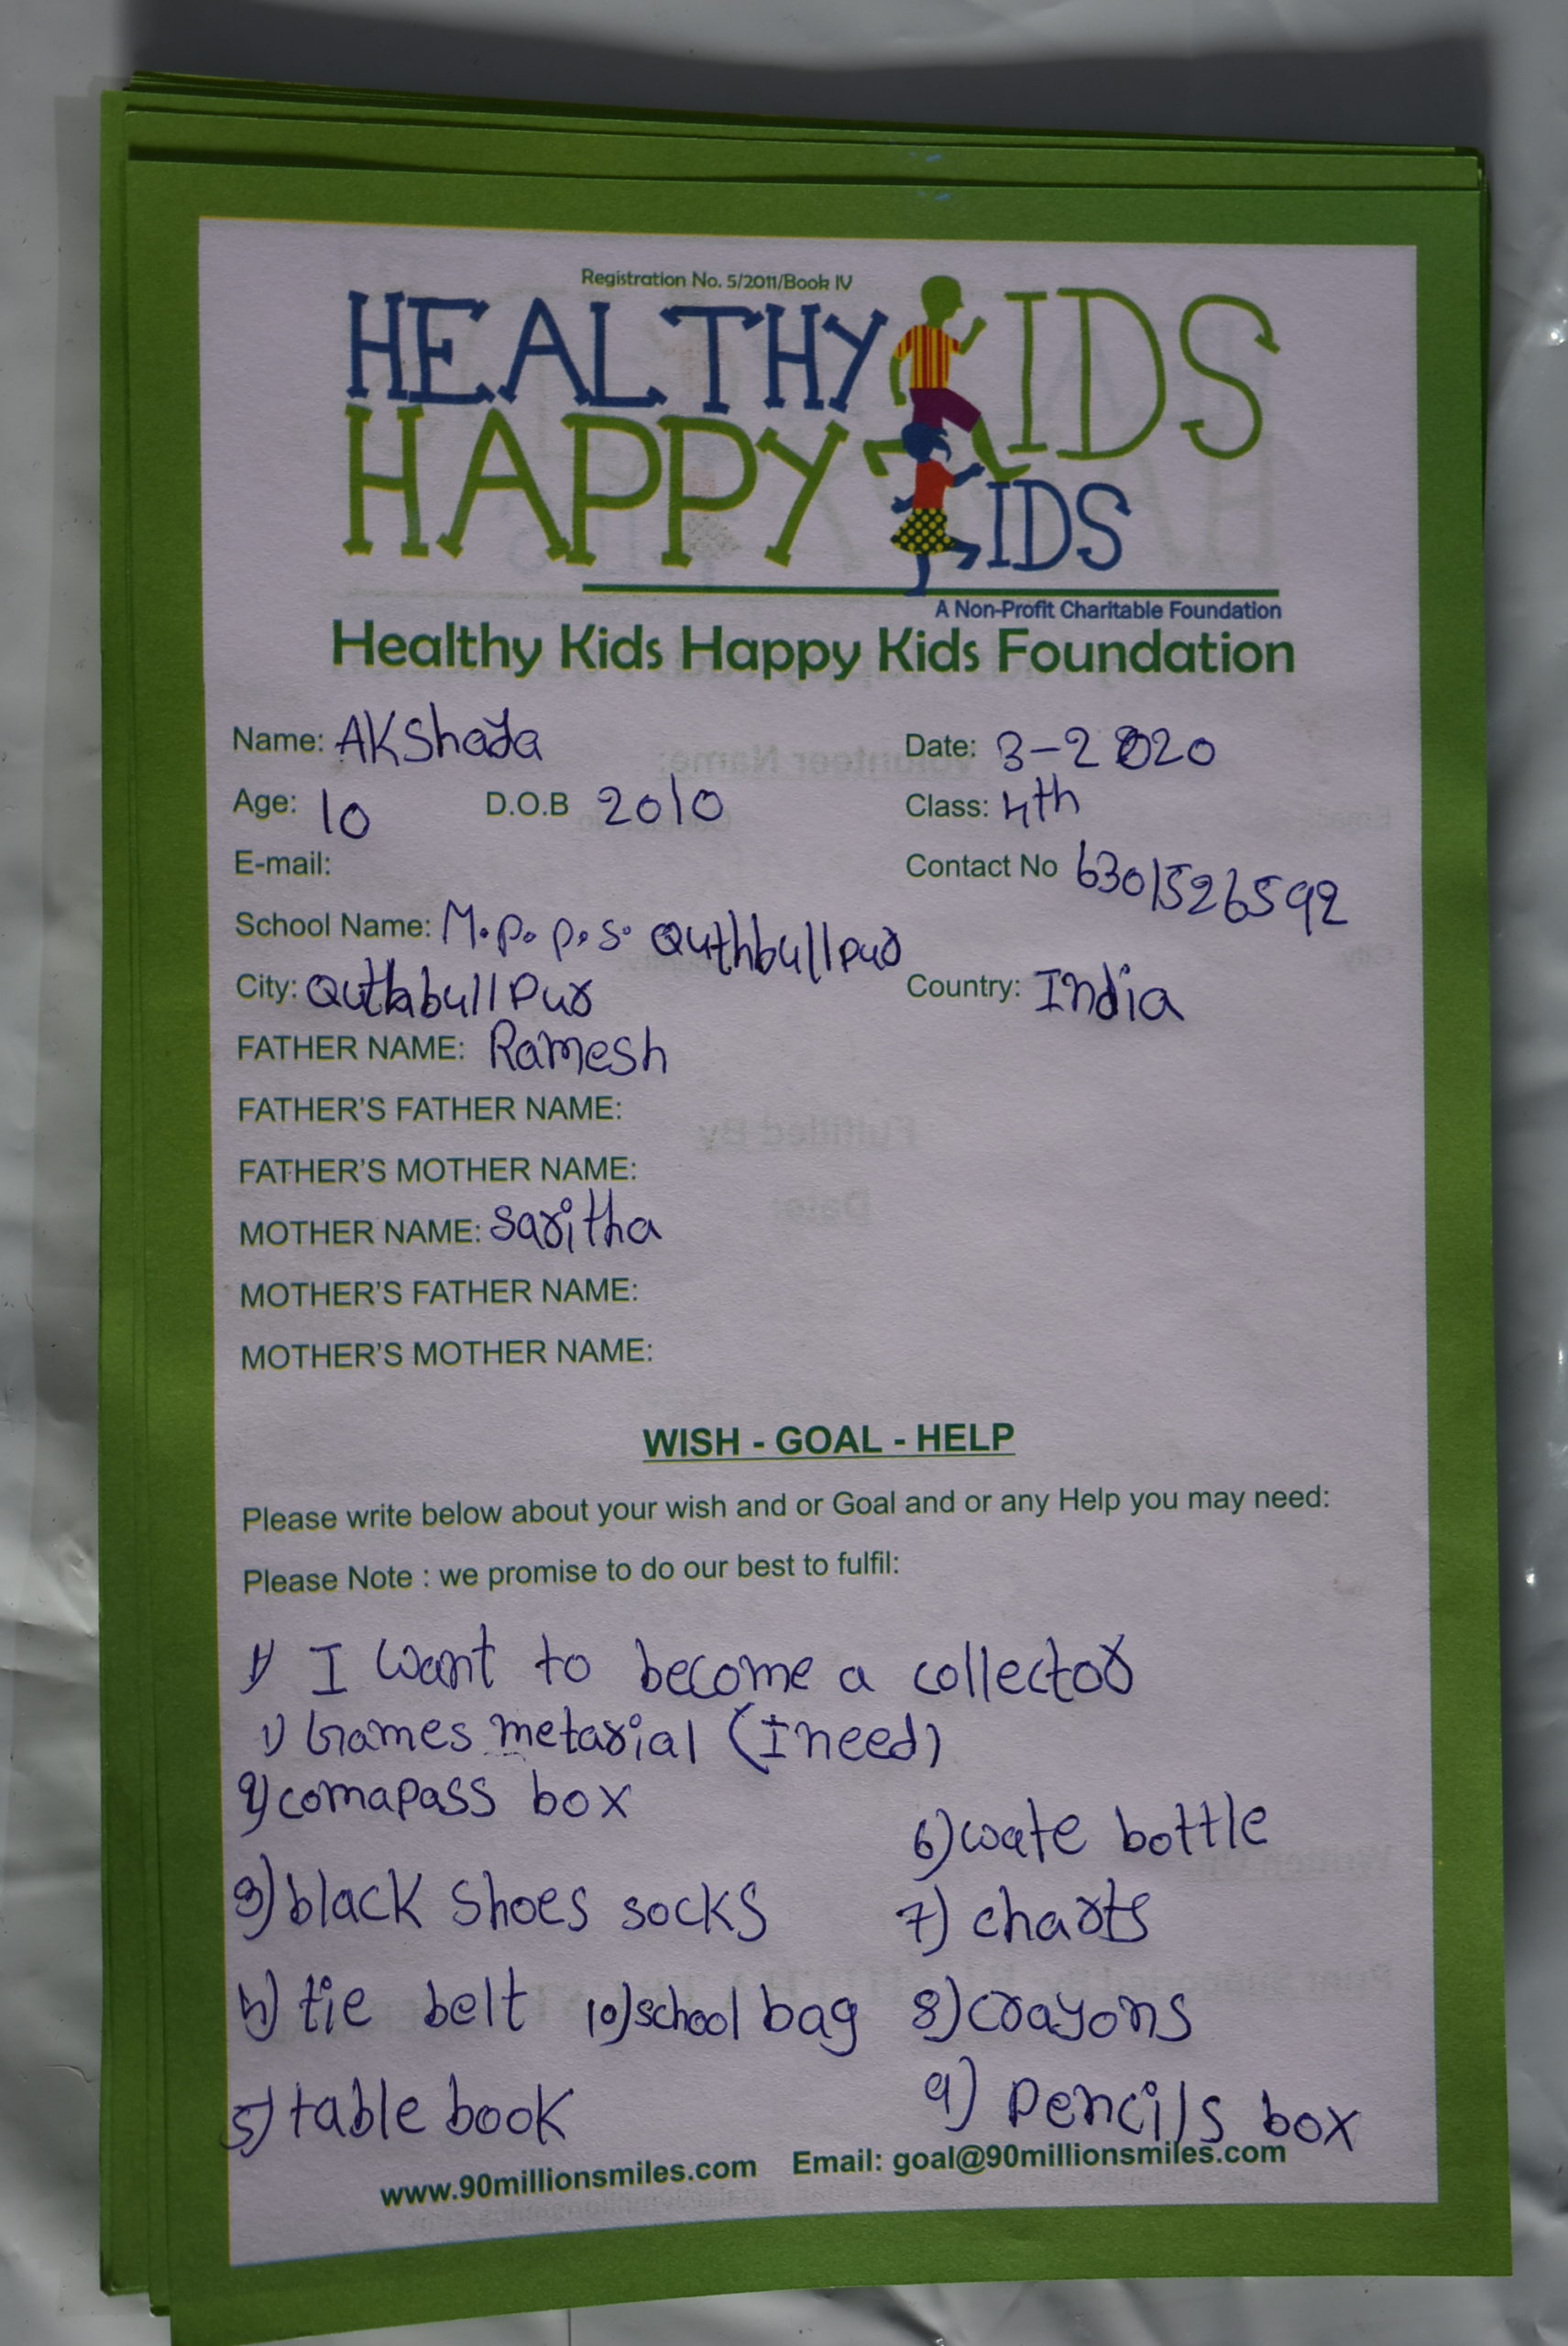 Registration No. 5/2011/Book IV
HEALTHY KIDS
HAPPY KIDS
A Non-Profit Charitable Foundation
Healthy Kids Happy Kids Foundation
Name: AKShara Date: 3-2 2020
Age: 10 D.O.B 2010 Class: 4th
E-mail: Contact No 6301526592
School Name: M.P.P.S. Quthbullpur
City: Quthbullpur Country: India
FATHER NAME: Ramesh
FATHER'S FATHER NAME:
FATHER'S MOTHER NAME:
MOTHER NAME: Saritha
MOTHER'S FATHER NAME:
MOTHER'S MOTHER NAME:
WISH - GOAL - HELP
Please write below about your wish and or Goal and or any Help you may need:
Please Note : we promise to do our best to fulfil:
1) I want to become a collector
1) Games metarial (I need)
2) comapass box
6) wate bottle
3) black shoes socks 7) charts
4) tie belt 10) school bag 8) crayons
5) table book 9) pencils box
www.90millionsmiles.com Email: goal@90millionsmiles.com